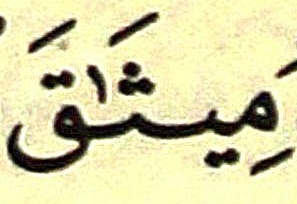 مِيثَٰقَ